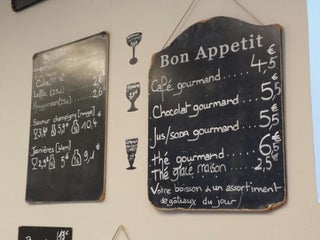 Leffe (25cl) 2,6
Hoegaarden (25cl) 2,6
Saumur champigny [rouge]
3,4 5,9 10,4
[blanc]
2,9 5€ 9,1
Bon Appetit
Café gourmand...... 4,5€
Chocolat gourmand.... 5,5€
Jus/soda gourmand.... 5,5€
thé gourmand....... 6,5€
Thé glacé maison.... 2,5€
Votre boisson & un assortiment
de gâteaux du jour/